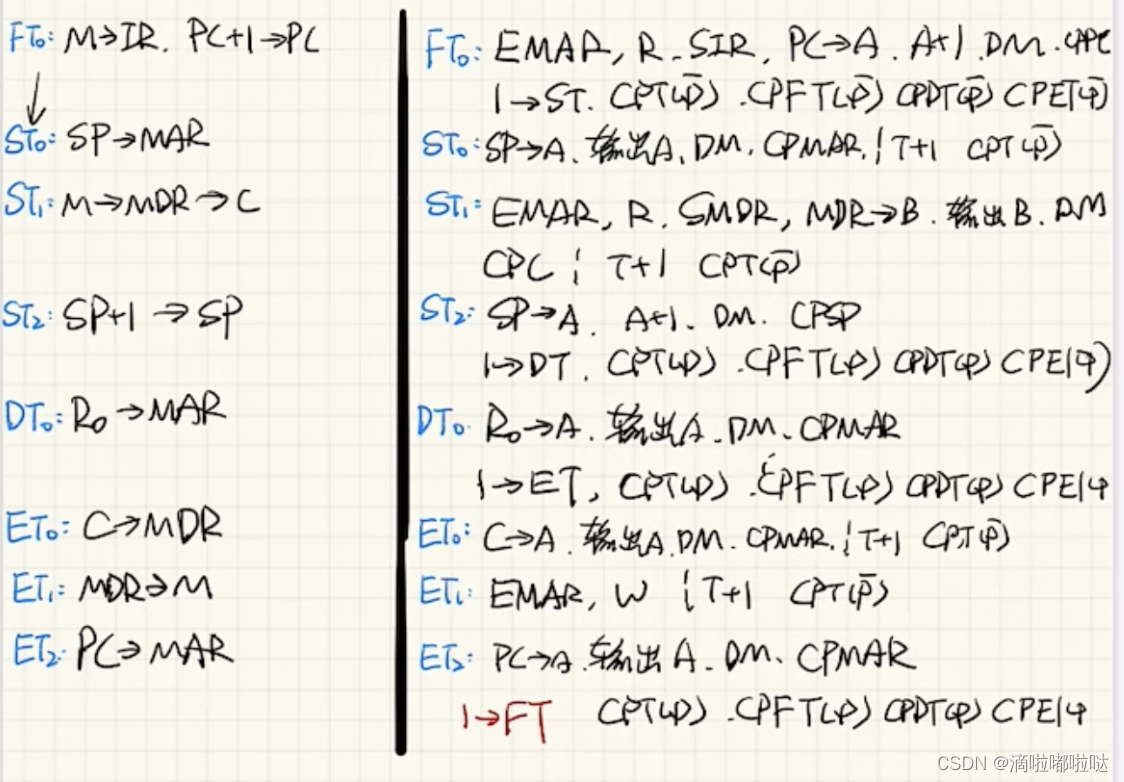 FT₀: M→IR. PC+1→PC
ST₀: SP→MAR
ST₁: M→MDR→C
ST₂: SP+1→SP
DT₀: R₀→MAR
ET₀: C→MDR
ET₁: MDR→M
ET₂: PC→MAR
FT₀: EMAR, R. SIR, PC→A. A+1. DM. CPPC
1→ST. CPT(P̄). CPFT(P̄) CPDT(P̄) CPET(P̄)
ST₀: SP→A. 输出A. DM. CPMAR. ¦ T+1 CPT(P̄)
ST₁: EMAR, R. SMDR, MDR→B. 输出B. DM
CPC ¦ T+1 CPT(P̄)
ST₂: SP→A. A+1. DM. CPSP
1→DT. CPT(P). CPFT(P) CPDT(P) CPE(P)
DT₀. R₀→A. 输出A. DM. CPMAR
1→ET, CPT(P). CPFT(P) CPDT(P) CPE(P
ET₀: C→A. 输出A. DM. CPMAR. ¦ T+1 CPT(P̄)
ET₁: EMAR, W ¦ T+1 CPT(P̄)
ET₂: PC→A. 输出A. DM. CPMAR
1→FT CPT(P). CPFT(P) CPDT(P) CPE(P
CSDN @滴啦嘟啦哒